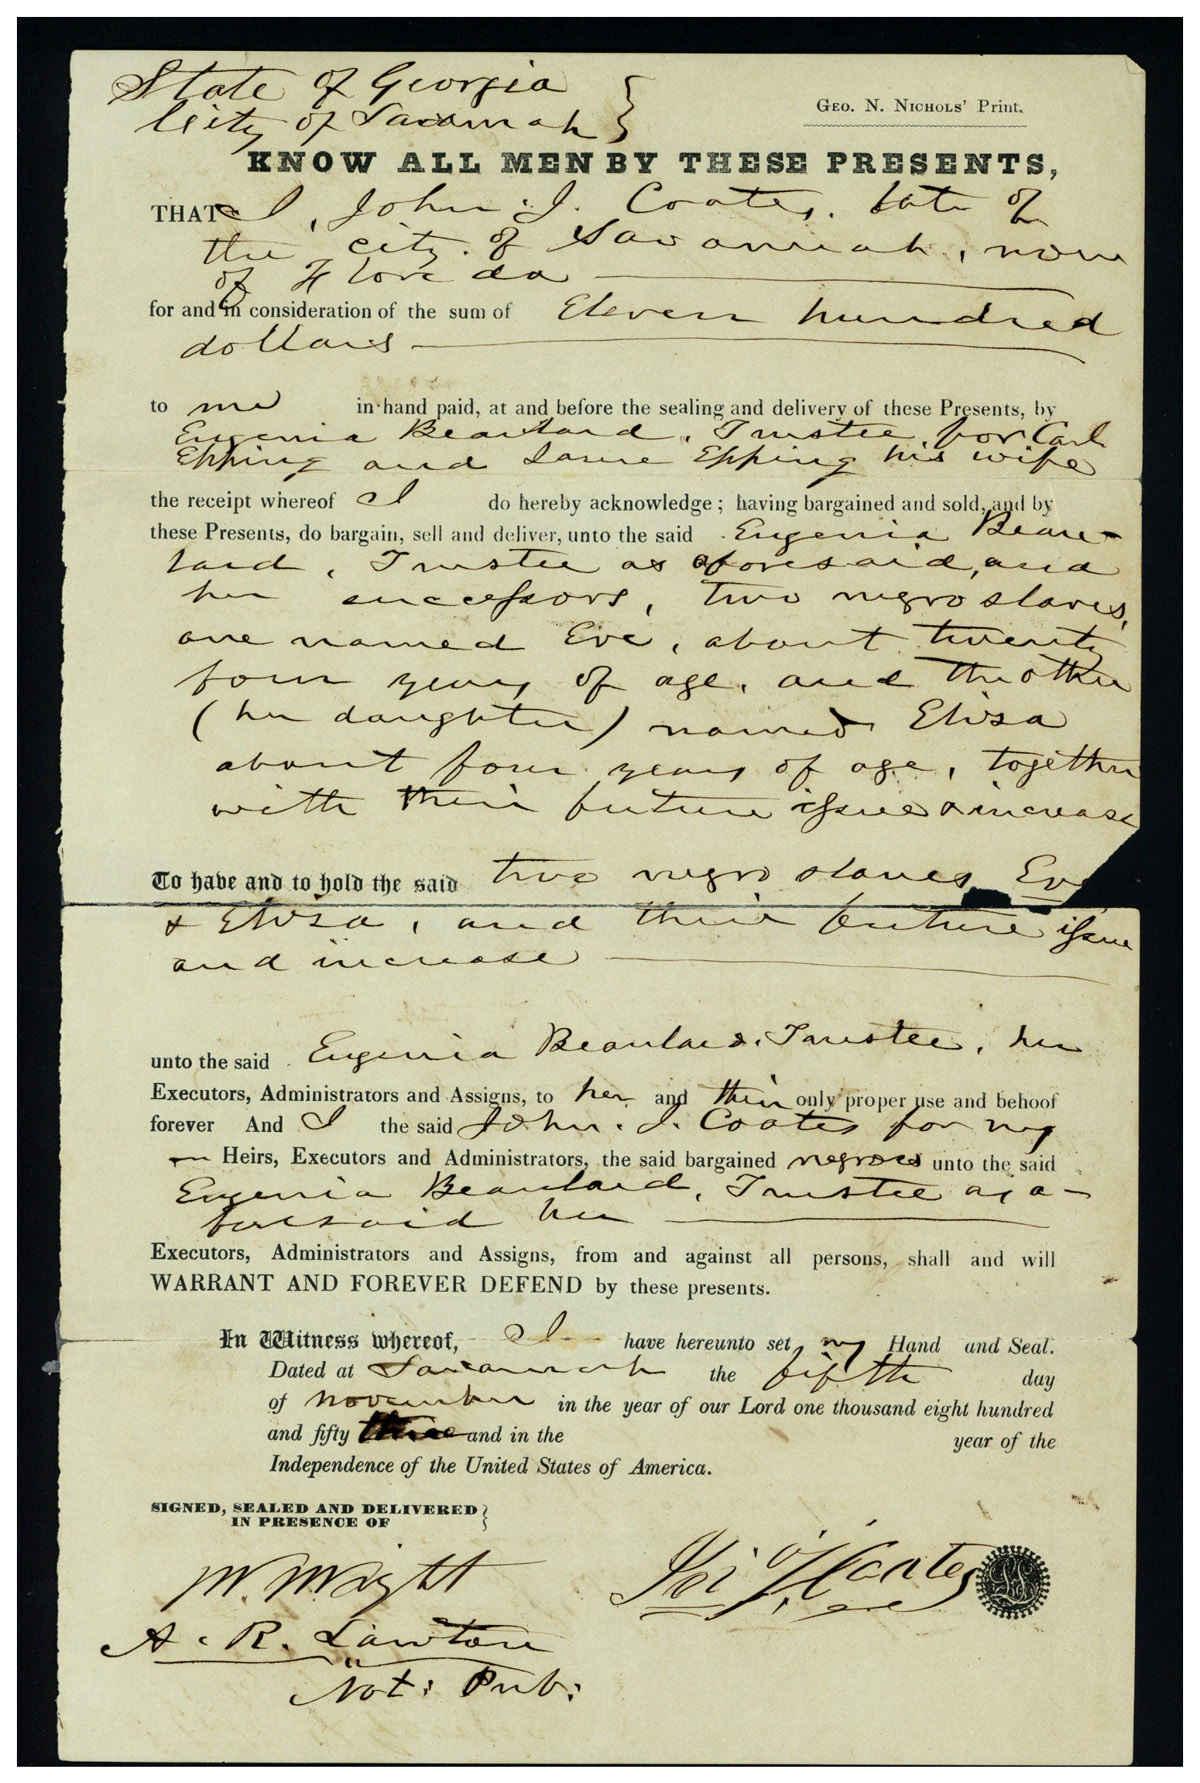 State of Georgia }
City of Savannah }
GEO. N. NICHOLS' Print.
KNOW ALL MEN BY THESE PRESENTS,
THAT I, John J. Coates, late of
the city of Savannah, now
of Florida
for and in consideration of the sum of Eleven hundred
dollars
to me in hand paid, at and before the sealing and delivery of these Presents, by
Eugenia Beaulard, Trustee for Carl
Epping and his wife
the receipt whereof I do hereby acknowledge; having bargained and sold, and by
these Presents, do bargain, sell and deliver, unto the said Eugenia Beau-
lard, Trustee as aforesaid, and
her successors, two negro slaves,
one named Eve, about twenty
four years of age, and the other
(her daughter) named Elisa
about four years of age, together
with their future issue & increase
To have and to hold the said two negro slaves Eve
& Elisa, and their future issue
and increase
unto the said Eugenia Beaulard, Trustee, her
Executors, Administrators and Assigns, to her and their only proper use and behoof
forever And I the said John J. Coates for my
Heirs, Executors and Administrators, the said bargained negroes unto the said
Eugenia Beaulard, Trustee as a-
foresaid her
Executors, Administrators and Assigns, from and against all persons, shall and will
WARRANT AND FOREVER DEFEND by these presents.
In Witness whereof, I have hereunto set my Hand and Seal.
Dated at Savannah the fifth day
of november in the year of our Lord one thousand eight hundred
and fifty three and in the year of the
Independence of the United States of America.
SIGNED, SEALED AND DELIVERED }
IN PRESENCE OF
W. Wright
Jno J Coates
A. R. Lawton
Not: Pub: